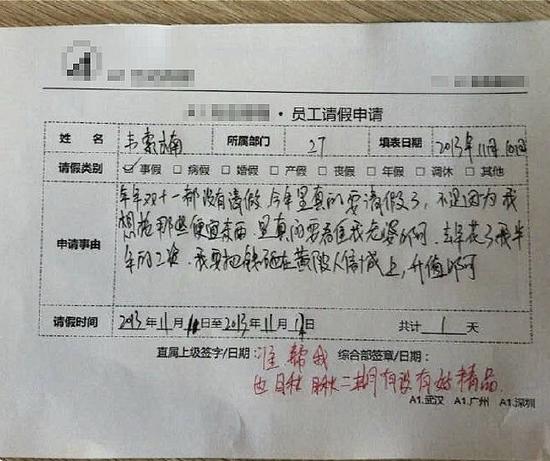 ·员工请假申请
姓 名 韦 楠 所属部门 27 填表日期 2013年11月10日
请假类别 ☑事假 □病假 □婚假 □产假 □丧假 □年假 □调休 □其他
年年双十一都没有请假 今年是真的要请假了,不是因为我
想抢那些便宜东西 是真的要看住我老婆啊 去年花了我半
申请事由
年的工资 我要把钱 在黄陂人信城上,升值
请假时间 2013年11月11日至2013年11月11日 共计 1 天
直属上级签字/日期: 准 帮我 综合部签章/日期:
也 二期有没有好精品
A1.武汉 A1.广州 A1.深圳